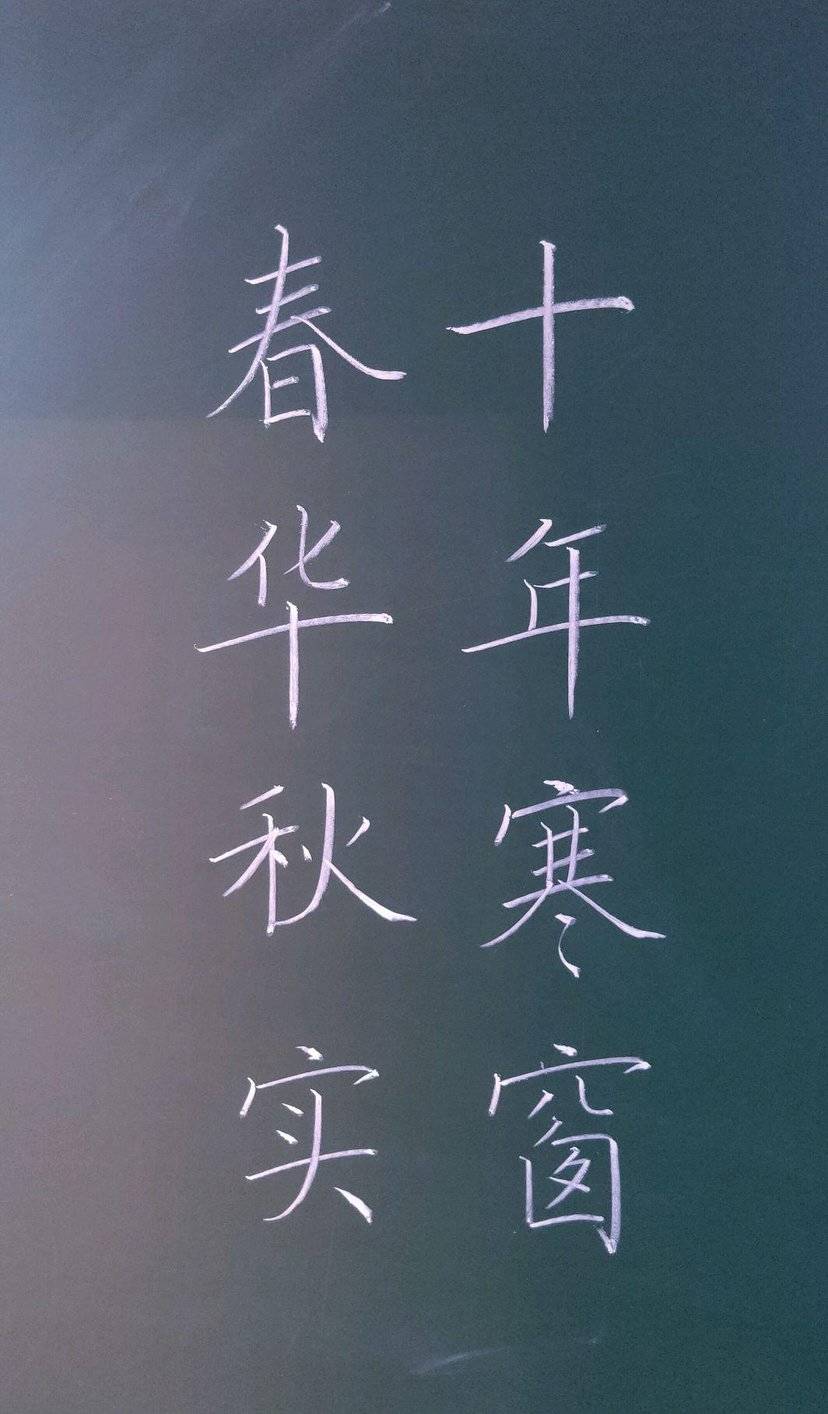 十年寒窗
春华秋实